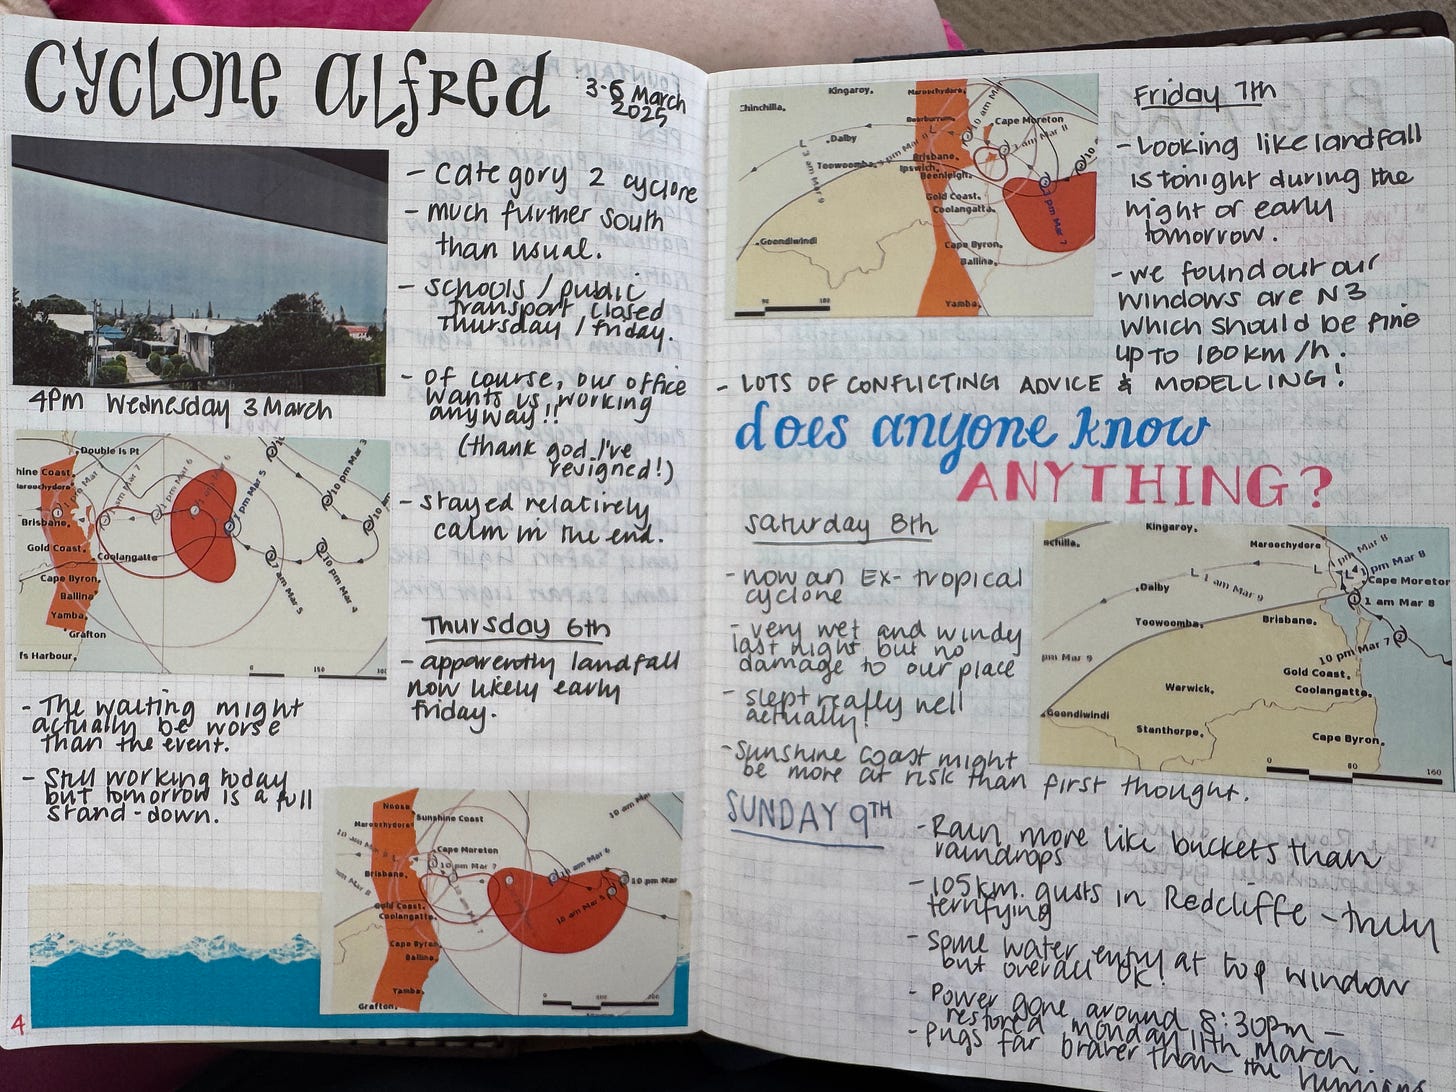 cyclone alfred
3-6 March
2025
- category 2 cyclone
- much further south
than usual.
- schools / public
transport closed
Thursday / friday.
- of course, our office
wants us working
anyway!!
(thank god I've
resigned!)
- stayed relatively
calm in the end.
4PM Wednesday 3 March
Double Is Pt
hine Coast
Maroochydore
Brisbane
Gold Coast
Coolangatta
Cape Byron
Ballina
Yamba
Grafton
fs Harbour
1 pm Mar 7
1 am Mar 7
1 pm Mar 6
1 am Mar 6
1 pm Mar 5
10 pm Mar 3
7 am Mar 5
10 pm Mar 4
0 150 300
- The waiting might
actually be worse
than the event.
- Still working today
but tomorrow is a full
stand-down.
Thursday 6th
- apparently landfall
now likely early
friday.
Noosa
Sunshine Coast
Maroochydore
Cape Moreton
10 pm Mar 7
Brisbane
Gold Coast
Coolangatta
Cape Byron
Ballina
Yamba
Grafton
10 am Mar
10 am Mar 6
10 pm Mar
10 am Mar 5
4
Chinchilla
Kingaroy
Maroochydore
Beerburrum
Cape Moreton
Dalby
Toowoomba
Brisbane
Ipswich
Beenleigh
Gold Coast
Coolangatta
Goondiwindi
Cape Byron
Ballina
Yamba
1 am Mar 9
1 pm Mar 8
1 am Mar 8
1 pm Mar 7
90 180
Friday 7th
- Looking like landfall
is tonight during the
night or early
tomorrow.
- we found out our
windows are N3
which should be fine
up to 180km/h!
- LOTS OF CONFLICTING ADVICE & MODELLING!
does anyone know
ANYTHING?
saturday 8th
- now an EX-tropical
cyclone
- very wet and windy
last night but no
damage to our place
- slept really well
actually!
- sunshine coast might
be more at risk than first thought.
chilla
Kingaroy
Maroochydore
Cape Moreton
1 pm Mar 8
1 pm Mar 8
1 am Mar 8
1 am Mar 9
Dalby
Toowoomba
Brisbane
10 pm Mar 7
pm Mar 9
Gold Coast
Coolangatta
Warwick
Goondiwindi
Stanthorpe
Cape Byron
0 80 160
SUNDAY 9TH
- Rain more like buckets than
raindrops
- 105km. gusts in Redcliffe - truly
terrifying
- Some water entry at top window
but overall OK!
- Power gone around 8:30pm -
restored monday 11th march.
- Pugs far braver than the humans